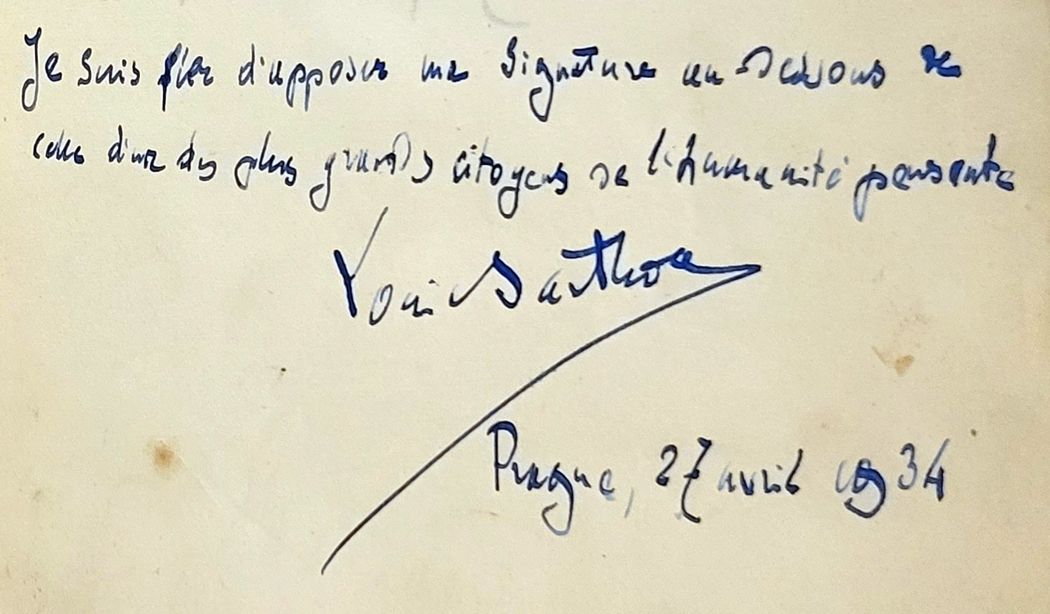 Je suis fier d'apposer ma signature au-dessous de
celle d'un des plus grands citoyens de l'humanité pensante
Louis Barthou
Prague, 27 avril 1934